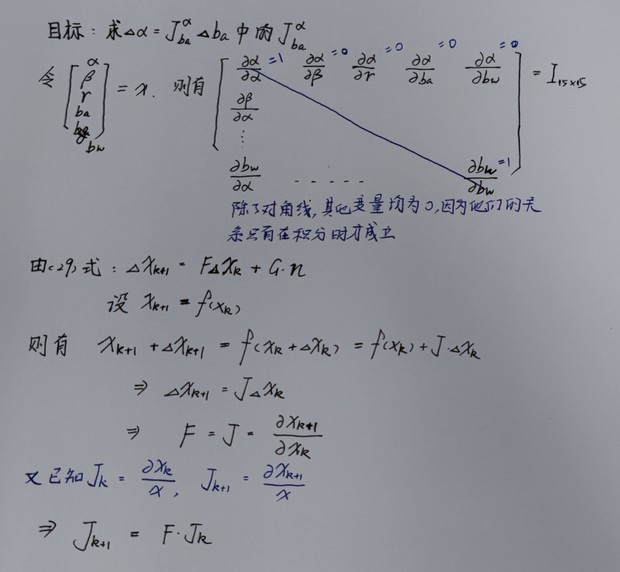 目标：求△α = J^α_ba △ba 中的 J^α_ba
令 [α β r ba bw] = x. 则有 [∂α/∂α =1 ∂α/∂β =0 ∂α/∂r =0 ∂α/∂ba =0 ∂α/∂bw =0] = I15×15
∂β/∂α
⋮
∂bw/∂α - - - - - ∂bw/∂bw =1
除了对角线，其他变量均为0，因为他们的关
系只有在积分时才成立
由(29)式：△Xk+1 = F△Xk + G·n
设 Xk+1 = f(Xk)
则有 Xk+1 + △Xk+1 = f(Xk + △Xk) = f(Xk) + J·△Xk
⇒ △Xk+1 = J△Xk
⇒ F = J = ∂Xk+1/∂Xk
又已知 Jk = ∂Xk/x, Jk+1 = ∂Xk+1/x
⇒ Jk+1 = F·Jk